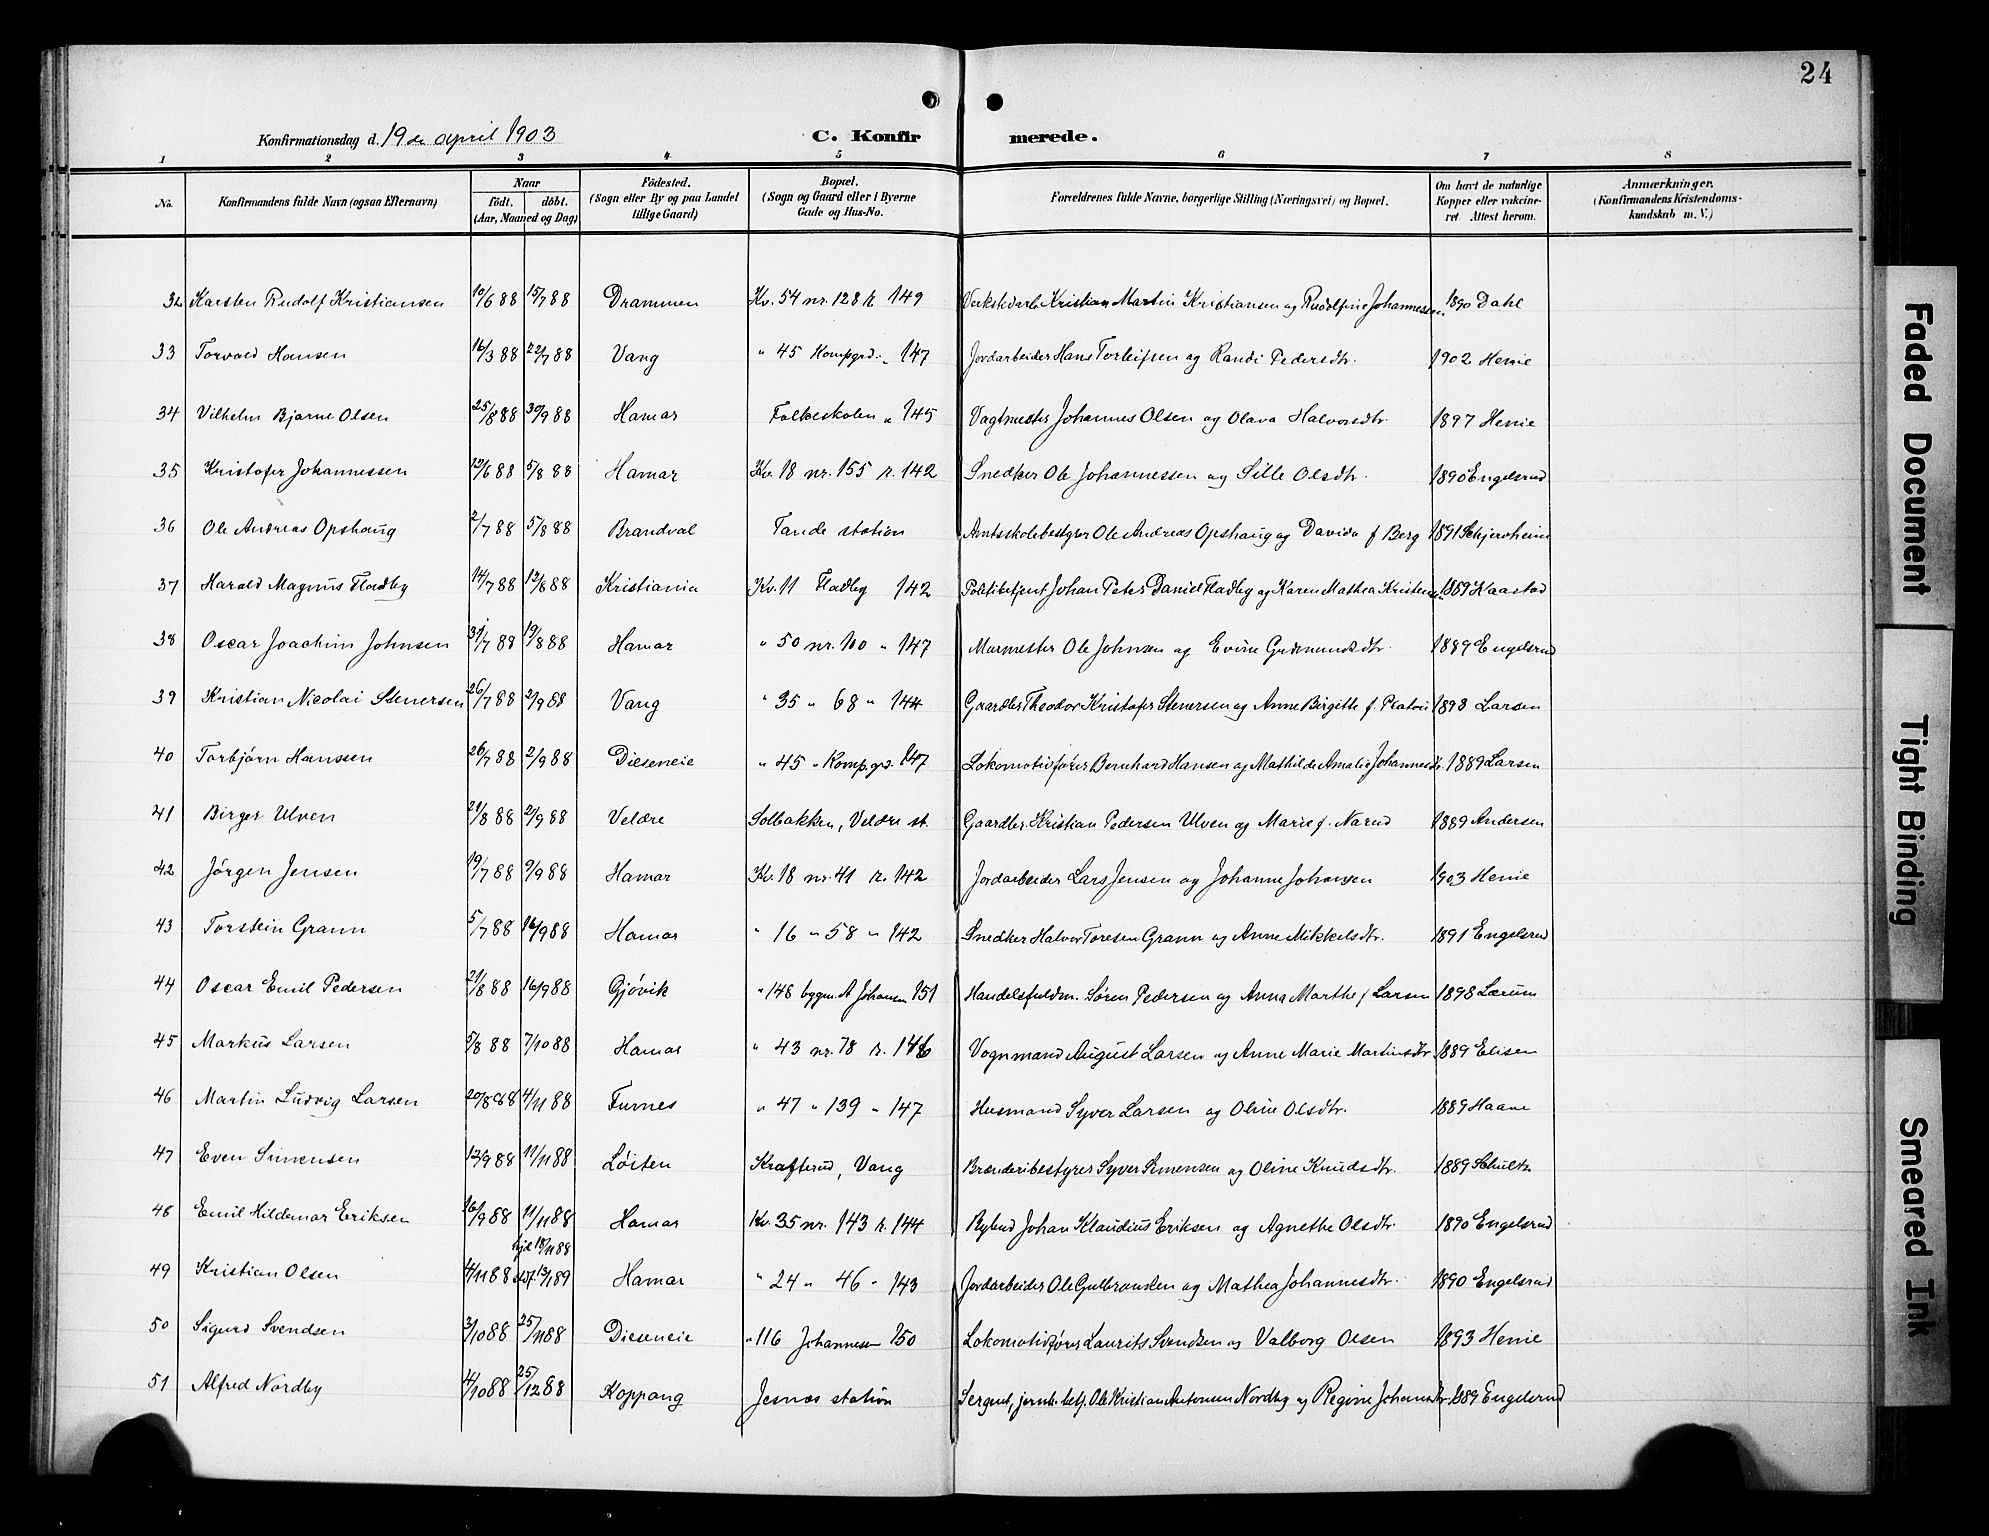 24
Konfirmationsdag d. 19de april 1903 C. Konfirmerede.
1 2 3 4 5 6 7 8
No. Konfirmandens fulde Navn (ogsaa Efternavn) Naar født. døbt. (Aar, Maaned og Dag) Fødested. (Sogn eller By og paa Landet tillige Gaard) Bopæl. (Sogn og Gaard eller i Byerne Gade og Hus-No. Forældrenes fulde Navne, borgerlige Stilling (Næringsvei) og Bopæl. Om havt de naturlige Kopper eller vakcineret Attest herom. Anmærkninger. (Konfirmandens Kristendomskundskab m. V.)
32 Karsten Rudolf Kristiansen 10/6 88 15/7 88 Drammen Kv. 54 nr. 128 r. 149 Kristian Martin Kristiansen og Rudolfine Johannessen 1890 Dahl
33 Torvald Hansen 16/3 88 22/7 88 Vang " 45 Kompgrd. " 147 Jordarbeider Hans Torleifsen og Randi Pedersdtr. 1902 Henie
34 Vilhelm Bjarne Olsen 25/8 88 30/9 88 Hamar Folkeskolen " 145 Vagtmester Johannes Olsen og Olava Halvorsdtr. 1897 Henie
35 Kristofer Johannessen 12/6 88 5/8 88 Hamar Kv. 18 nr. 155 r. 142 Snedker Ole Johannessen og Sille Olsdtr. 1890 Engelsrud
36 Ole Andreas Opshaug 2/7 88 5/8 88 Brandval Tande station Amtsskolebestyrer Ole Andreas Opshaug og Davida f Berg 1891 Schjervheim
37 Harald Magnus Fladby 14/7 88 12/8 88 Kristiania Kv. 11 Fladby 142 Politibetjent Johan Peter Daniel Fladby og Karen Mathea Kristensen 1889 Kaastad
38 Oscar Joachim Johnsen 31/7 88 19/8 88 Hamar " 50 nr. 110 " 147 Murmester Ole Johnsen og Evine Gudmundsdtr. 1889 Engelsrud
39 Kristian Nicolai Stenersen 26/7 88 2/9 88 Vang " 35 " 68 " 144 Gaardbr. Theodor Kristofer Stenersen og Anne Birgitte f. Platou 1898 Larsen
40 Torbjørn Hanssen 26/7 88 2/9 88 Dieseneie " 45 " Komp.grd. 147 Lokomotivfører Bernhard Hansen og Mathilde Amalie Johannesdtr. 1889 Larsen
41 Birger Ulven 21/8 88 2/9 88 Veldre Solbakken, Veldre st. Gaardbr. Kristian Pedersen Ulven og Marie f. Narud 1889 Andersen
42 Jørgen Jensen 19/7 88 9/9 88 Hamar Kv. 18 nr. 41 r. 142 Jordarbeider Lars Jensen og Johanne Johansen 1903 Henie
43 Torstein Grann 5/7 88 16/9 88 Hamar " 16 " 58 " 142 Snedker Halvor Toresen Grann og Anne Mikkelsdtr. 1891 Engelsrud
44 Oscar Emil Pedersen 21/8 88 16/9 88 Gjøvik " 148 bygm. A Johansen 151 Handelsfuldm. Søren Pedersen og Anna Marthe f Larsen 1898 Lærum
45 Markus Larsen 5/8 88 7/10 88 Hamar " 43 nr. 78 r. 146 Vognmand August Larsen og Anne Marie Martinsdtr. 1889 Elisen
46 Martin Ludvig Larsen 20/8 88 4/11 88 Furnes " 47 " 139 " 147 Husmand Syver Larsen og Oline Olsdtr. 1889 Haave
47 Even Simensen 12/9 88 11/11 88 Løiten Krafterud, Vang Brænderibestyrer Syver Simensen og Oline Knudsdtr. 1889 Schultz
48 Emil Hildemar Eriksen 16/9 88 11/11 88 Hamar Kv. 35 nr. 143 r. 144 Bybud Johan Klaudius Eriksen og Agnethe Olsdtr. 1890 Engelsrud
49 Kristian Olsen 4/11 88 hjd 18/11 88 st.f. 13/1 89 Hamar " 24 " 46 " 143 Jordarbeider Ole Gulbrandsen og Mathea Johannesdtr. 1890 Engelsrud
50 Sigurd Svendsen 3/10 88 25/11 88 Dieseneie " 116 Johannesen 150 Lokomotivfører Laurits Svendsen og Valborg Olsen 1893 Henie
51 Alfred Nordby 4/10 88 25/12 88 Koppang Jesnæs station Sergent, jernb. betj. Ole Kristian Antonsen Nordby og Regine Johansdtr. 1889 Engelsrud
Faded Document
Tight Binding
Smeared Ink